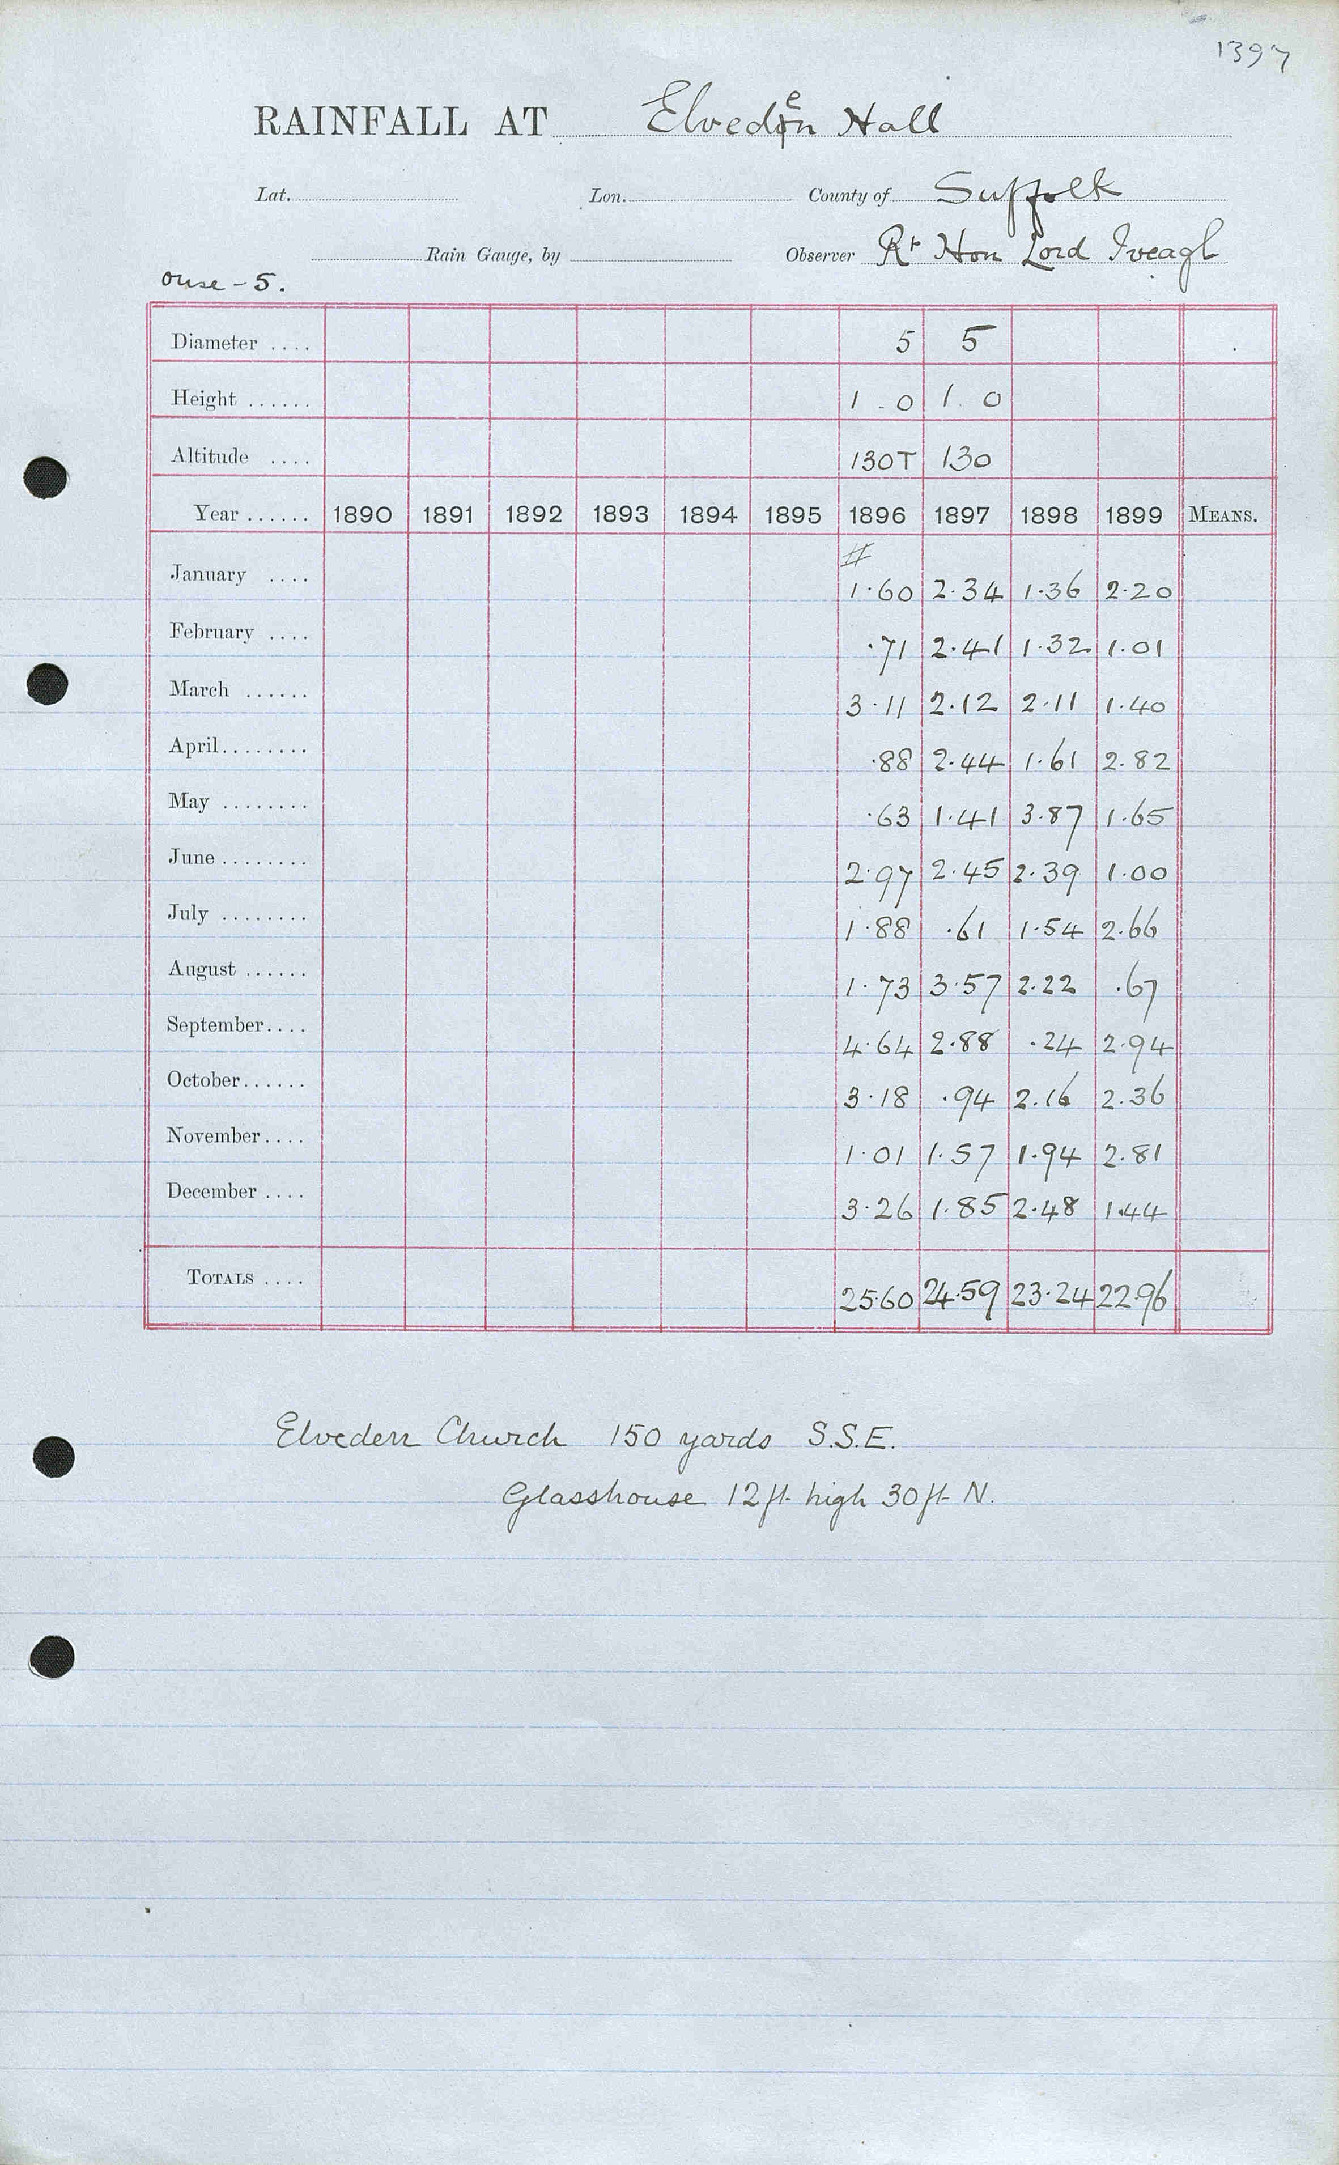 1397
RAINFALL AT Elveden Hall
Lat. Lon. County of Suffolk
Rain Gauge, by Observer Rt Hon Lord Iveagh
Ouse - 5.
Diameter .... 5 5
Height ...... 1 - 0 1. 0
Altitude .... 130T 130
Year ...... 1890 1891 1892 1893 1894 1895 1896 1897 1898 1899 MEANS.
#
January .... 1·60 2·34 1·36 2·20
February .... ·71 2·41 1·32 1·01
March ...... 3·11 2·12 2·11 1·40
April........ ·88 2·44 1·61 2·82
May ........ ·63 1·41 3·87 1·65
June ........ 2·97 2·45 2·39 1·00
July ........ 1·88 ·61 1·54 2·66
August ...... 1·73 3·57 2·22 ·67
September.... 4·64 2·88 ·24 2·94
October...... 3·18 ·94 2·16 2·36
November.... 1·01 1·57 1·94 2·81
December .... 3·26 1·85 2·48 1·44
TOTALS .... 25·60 24·59 23·24 22·96
Elveden Church 150 yards S.S.E.
Glasshouse 12 ft high 30 ft N.